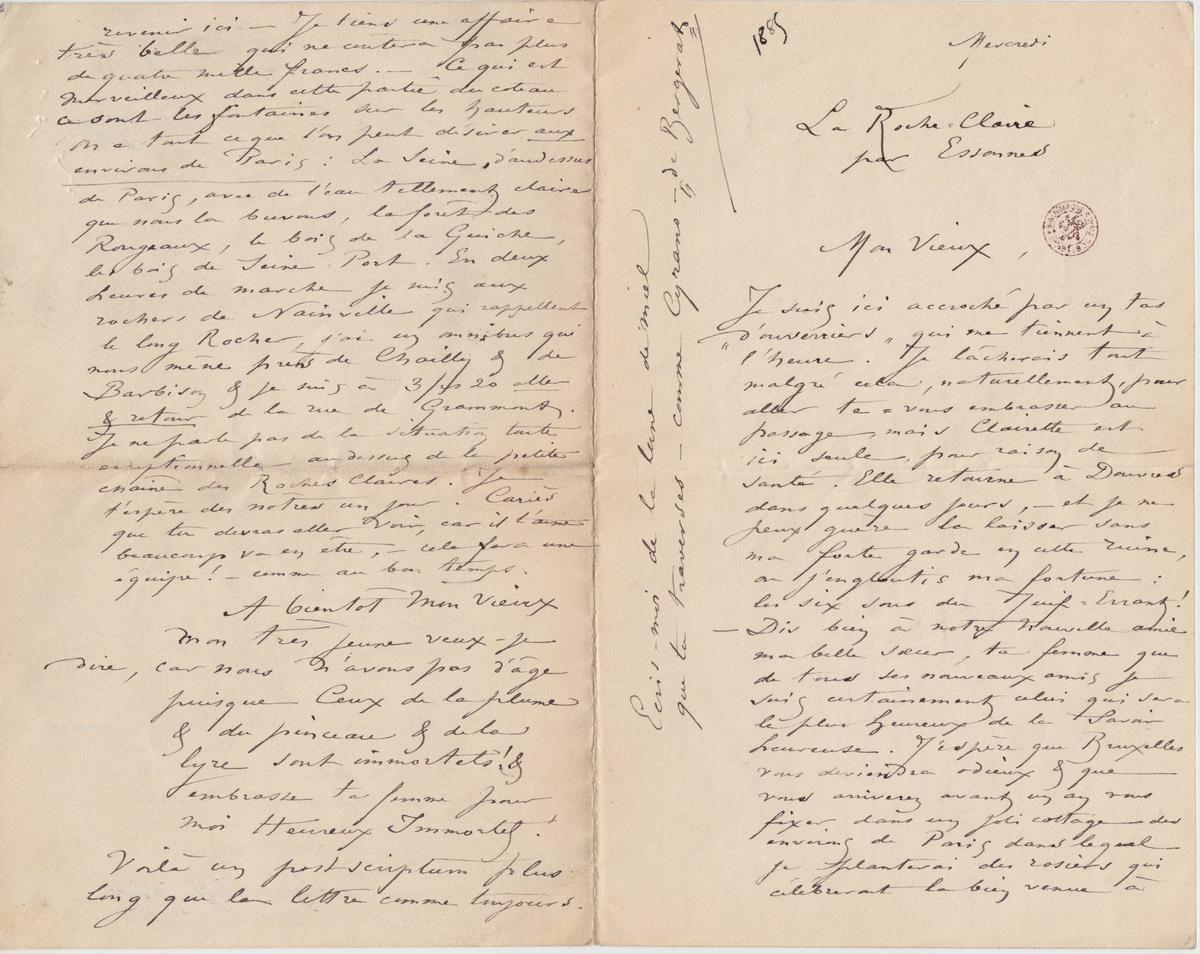 1885
Mercredi
La Roche-Claire
par Essonnes
Mon Vieux,
Je suis ici accroché par un tas
"d'ouverriers" qui me tiennent à
l'heure. Je lâcherais tout
malgré cela, naturellement, pour
aller te = vous embrasser au
passage, mais Clairette est
ici seule, pour raison de
santé. Elle retourne à Douvres
dans quelques jours, - et je ne
peux guère la laisser sans
ma forte garde en cette ruine,
où j'engloutis ma fortune :
les six sous du Juif=Errant!
— Dis bien à notre nouvelle amie
ma belle sœur, ta femme que
de tous ses nouveaux amis je
suis certainement celui qui sera
le plus heureux de la savoir
heureuse. J'espère que Bruxelles
vous deviendra odieux & que
vous arriverez avant un an vous
fixer dans un joli cottage des
environs de Paris dans lequel
je planterai des rosiers qui
célèbreront la bien venue à
revenir ici — Je tiens une affaire
très belle qui ne coutera pas plus
de quatre mille francs. — Ce qui est
merveilleux dans cette partie du coteau
ce sont les fontaines sur les hauteurs
on a tout ce que l'on peut désirer aux
environs de Paris : La Seine, d'audessus
de Paris, avec de l'eau tellement claire
que nous la buvons, la forêt des
Rougeaux, le bois de la Guiche,
le bois de Seine-Port. En deux
heures de marche je suis aux
rochers de Nainville qui rappellent
le long Rocher, j'ai un omnibus qui
nous mène près de Chailly & de
Barbison & je suis à 3 frs 20 aller
& retour de la rue de Grammont.
Je ne parle pas de la situation toute
exceptionnelle — au dessus de la petite
chaine des Roches Claires. Je
t'espère des notres un jour. Cariès
que tu devras aller voir, car il t'aime
beaucoup va en être, - cela fera une
équipe! - comme au bon temps.
A bientôt Mon Vieux
mon très jeune veux-je
dire, car nous n'avons pas d'âge
puisque Ceux de la plume
& du pinceau & de la
lyre sont immortels! &
embrasse ta femme pour
moi Heureux Immortel!
Voilà un post scriptum plus
long que la lettre comme toujours.
Ecris-moi de la lune de miel
que tu traverses - comme Cyrano - de Bergerat